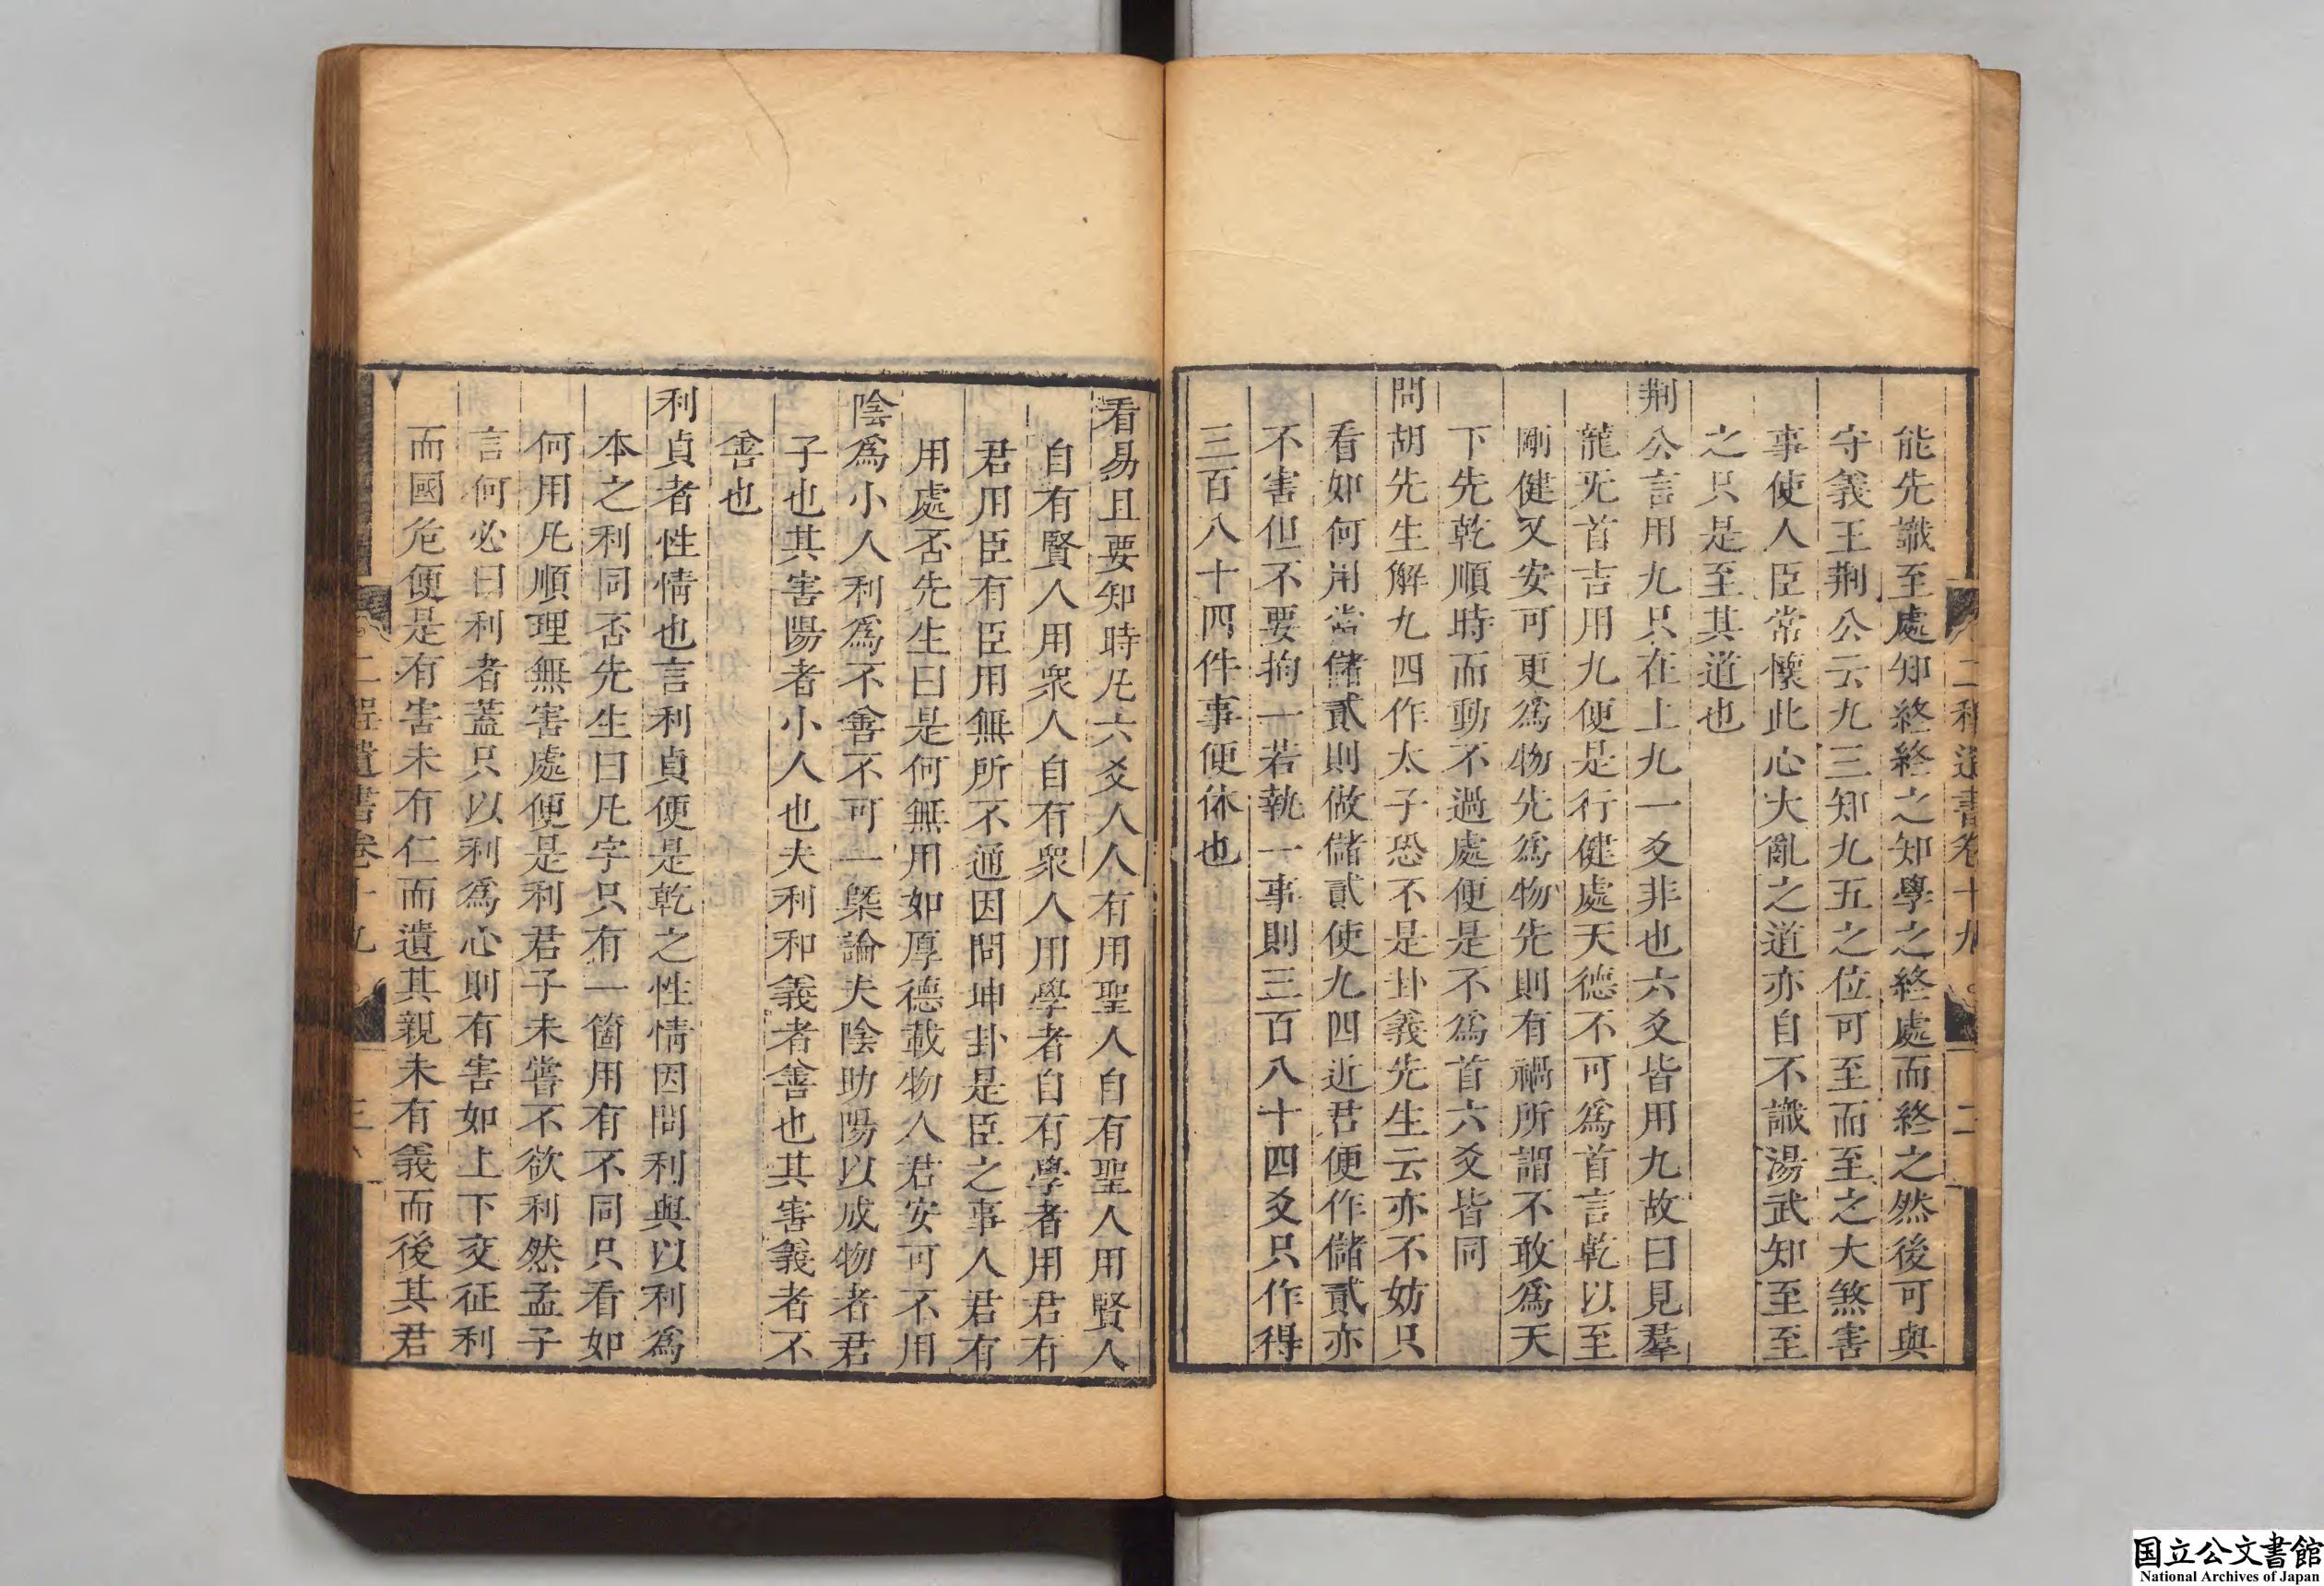 二程遺書卷十九
二
能先識至處知終終之知學之終處而終之然後可與
守義王荆公云九三知九五之位可至而至之大煞害
事使人臣常懷此心大亂之道亦自不識湯武知至至
之只是至其道也
荆公言用九只在上九一爻非也六爻皆用九故曰見羣
龍旡首吉用九便是行健處天德不可爲首言乾以至
剛健又安可更爲物先爲物先則有禍所謂不敢爲天
下先乾順時而動不過處便是不爲首六爻皆同
問胡先生解九四作太子恐不是卦義先生云亦不妨只
看如何用當儲貳則做儲貳使九四近君便作儲貳亦
不害但不要拘一若執一事則三百八十四爻只作得
三百八十四件事便休也
看易且要知時凡六爻人人有用聖人自有聖人用賢人
自有賢人用衆人自有衆人用學者自有學者用君有
君用臣有臣用無所不通因問坤卦是臣之事人君有
用處否先生曰是何無用如厚德載物人君安可不用
陰爲小人利爲不善不可一槩論夫陰助陽以成物者君
子也其害陽者小人也夫利和義者善也其害義者不
善也
利貞者性情也言利貞便是乾之性情因問利與以利爲
本之利同否先生曰凡字只有一箇用有不同只看如
何用凡順理無害處便是利君子未嘗不欲利然孟子
言何必曰利者蓋只以利爲心則有害如上下交征利
而國危便是有害未有仁而遺其親未有義而後其君
二程遺書卷十九
三
国立公文書館
National Archives of Japan